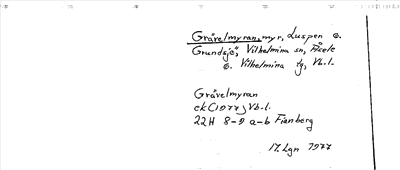 Gråvelmyran, myr, Luspen o.
Grundsjö, Vilhelmina sn, Åsele
o. Vilhelmina tg, Vb.l.
Gråvelmyran
ek (1977) Vb.l.
22H 8-9 a-b Fianberg
17. Lgn 1977